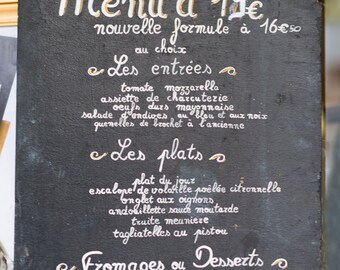 Menu à 15€
nouvelle formule à 16€50
au choix
Les entrées
tomate mozzarella
assiette de charcuterie
oeufs durs mayonnaise
salade d'endives au bleu et aux noix
quenelles de brochet à l'ancienne
Les plats
plat du jour
escalope de volaille poêlée citronnelle
onglet aux oignons
andouillette sauce moutarde
truite meunière
tagliatelles au pistou
Fromages ou Desserts